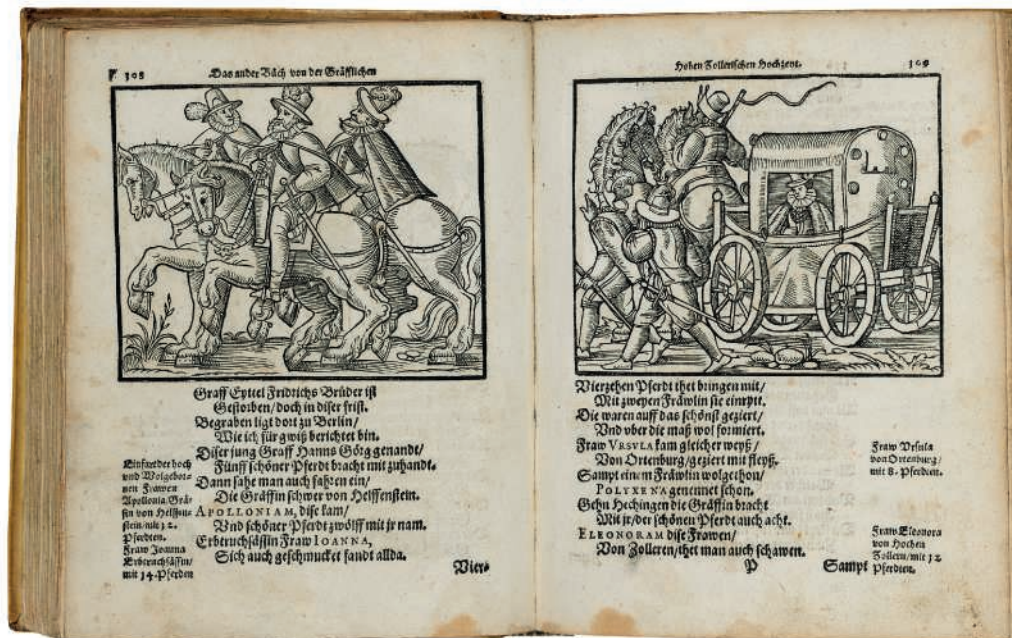 108
Das ander Buch von der Gräfflichen
Graff Eyttel Fridrichs Bruder ist
Gestorben/doch in diser frist.
Begraben ligt dort zu Berlin/
Wie ich für gwiß berichtet bin.
Diser jung Graff Hanns Görg genandt/
Fünff schöner Pferdt bracht mit zuhandt.
Dann sahe man auch fahren ein/
Die Gräffin schwer von Helffenstein.
APOLLONIAM, dise kam/
Vnd schöner Pferdt zwölff mit jr nam.
Erbtruchsässin Fraw IOANNA,
Sich auch geschmucket fandt allda.
Einfart der hoch
vnd Wolgebor-
nen Frawen
Apollonia/Grä-
fin von Helffen-
stein/mit 12.
Pferdten.
Fraw Joanna
Erbtruchsässin/
mit 14. Pferden
Vier-
Hohen Zollerischen Hochzeyt.
109
Vierzehen Pferdt thet bringen mit/
Mit zweyen Fräwlin sie einrytt.
Die waren auff das schönst geziert/
Vnd vber die maß wol formiert.
Fraw VRSVLA kam gleicher weyß/
Von Ortenburg/geziert mit fleyß.
Sampt einem Fräwlin wolgethon/
POLYXENA genennet schon.
Gehn Hechingen die Gräffin bracht
Mit jr/der schönen Pferdt auch acht.
ELEONORAM dise Frawen/
Von Zolleren/thet man auch schawen.
Fraw Vrsula
von Ortenburg/
mit 8. Pferdten.
Fraw Eleonora
von Hochen
Zollern/mit 12
Pferdten.
P
Sampt